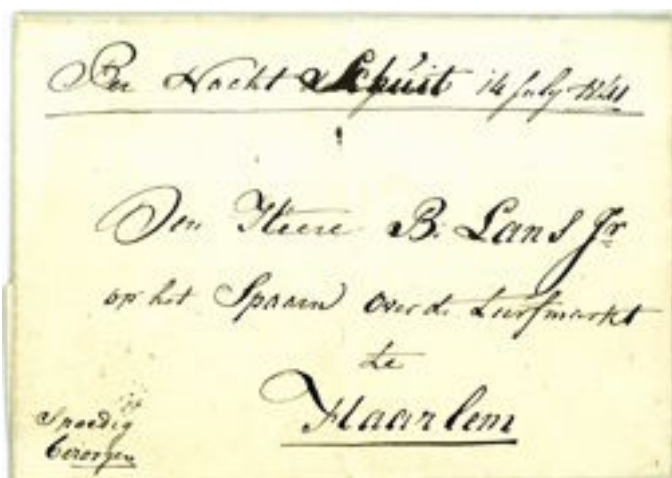 Per Nacht Schuit 14 July 1841
Den Heere B. Lans Jr
op het Spaarn over de Turfmarkt
te
Haarlem
Spoedig
bezorgen